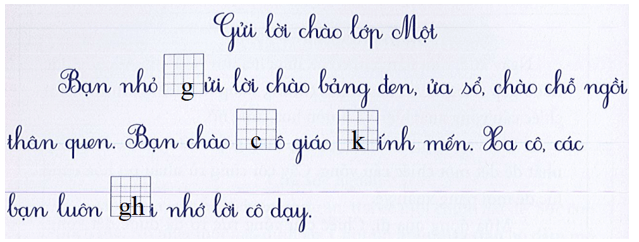 Gửi lời chào lớp Một
Bạn nhỏ gửi lời chào bảng đen, ửa sổ, chào chỗ ngồi
thân quen. Bạn chào cô giáo kính mến. Xa cô, các
bạn luôn ghi nhớ lời cô dạy.